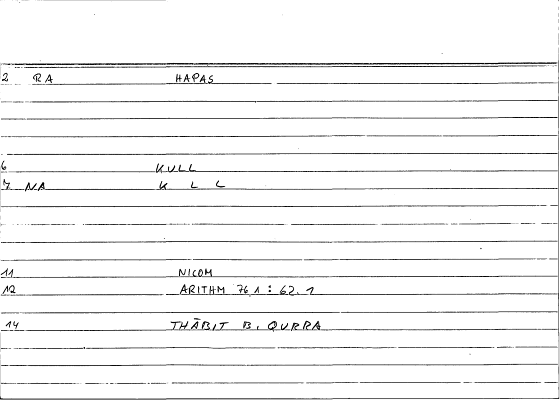 2 RA HAPAS
6 KULL
7 NA K L L
11 NICOM
12 ARITHM 76 1 : 62. 1
14 THĀBIT B. QURRA